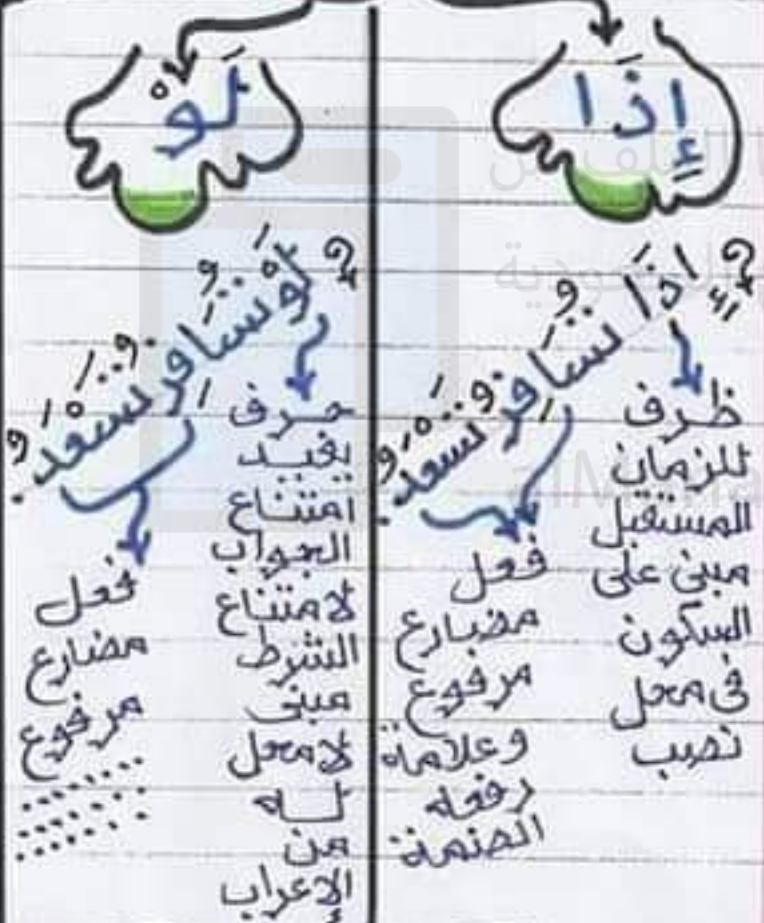 إِذَا
إِذَا نُسَافِرُ نَسْعَدُ.
ظرف
للزمان
المستقبل
مبنى على
السكون
فى محل
نصب
فعل
مضارع
مرفوع
وعلامة
رفعه
الضمة
لَوْ
لَوْ نُسَافِرُ نَسْعَدُ.
حرف
يفيد
امتناع
الجواب
لامتناع
الشرط
مبنى
لا محل
له
من
الإعراب
فعل
مضارع
مرفوع